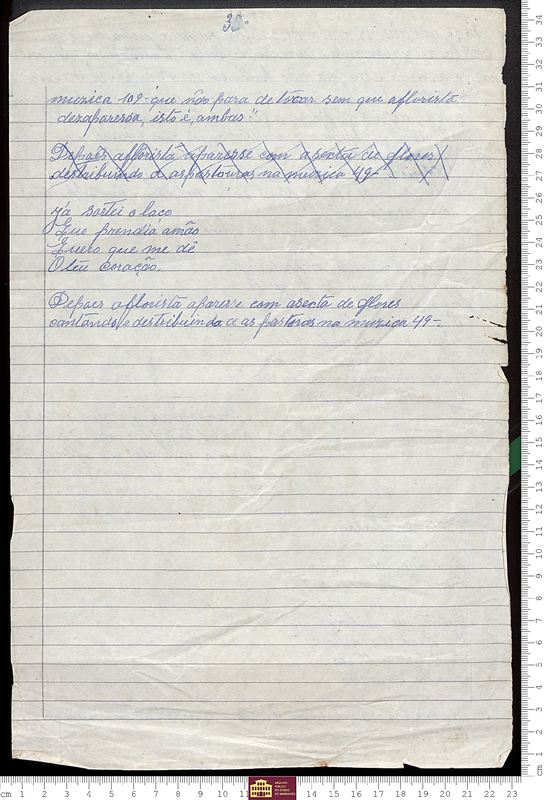 35
muzica 109- que não para de tocar sem que aflorista
dezaparessa, isto é, ambas"
Depoes aflorista aparesse com asexta de flores
destribuindo a aspastouras na muzica 49-
Já Sortei o laço
Que prendia amão
Quero que me dê
O teu coração.
Depoes aflorista aparesse com asexta de flores
cantando e destribuindo a as pastoras na muzica 49-